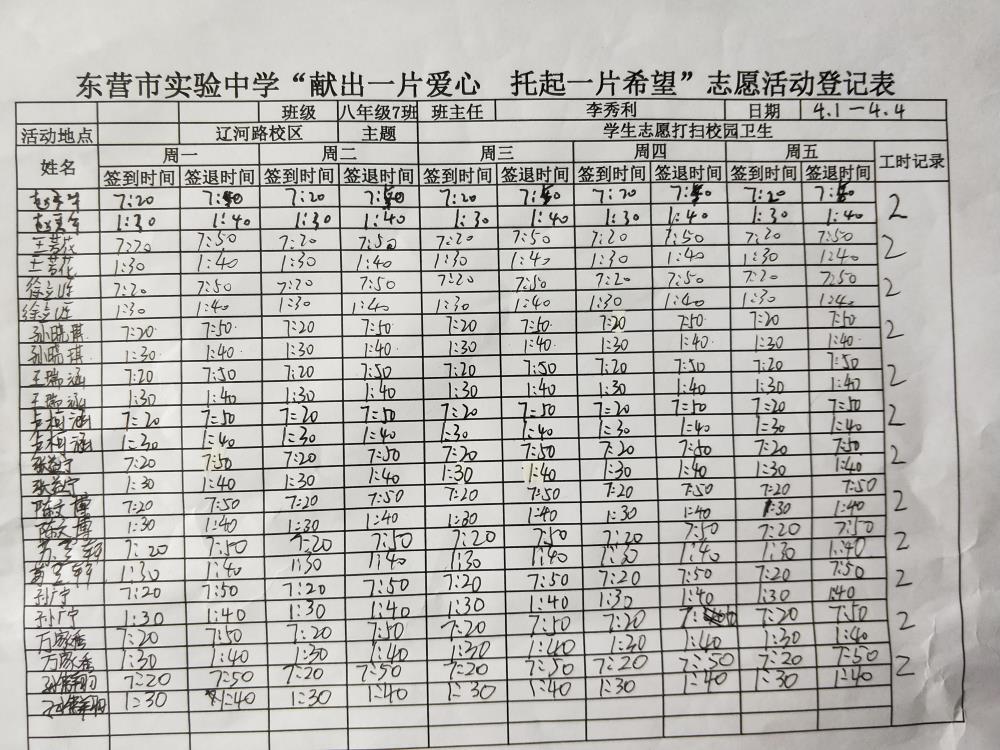 东营市实验中学“献出一片爱心 托起一片希望”志愿活动登记表
班级 八年级7班 班主任 李秀利 日期 4.1-4.4
活动地点 辽河路校区 主题 学生志愿打扫校园卫生
姓名 周一 周二 周三 周四 周五 工时记录
签到时间 签退时间 签到时间 签退时间 签到时间 签退时间 签到时间 签退时间 签到时间 签退时间
7:20 7:50 7:20 7:50 7:20 7:50 7:20 7:50 7:20 7:50 2
1:30 1:40 1:30 1:40 1:30 1:40 1:30 1:40 1:30 1:40
王芳花 7:20 7:50 7:20 7:50 7:20 7:50 7:20 7:50 7:20 7:50 2
王芳花 1:30 1:40 1:30 1:40 1:30 1:40 1:30 1:40 1:30 1:40
7:20 7:50 7:20 7:50 7:20 7:50 7:20 7:50 7:20 7:50 2
1:30 1:40 1:30 1:40 1:30 1:40 1:30 1:40 1:30 1:40
孙晓琪 7:20 7:50 7:20 7:50 7:20 7:50 7:20 7:50 7:20 7:50 2
孙晓琪 1:30 1:40 1:30 1:40 1:30 1:40 1:30 1:40 1:30 1:40
王瑞涵 7:20 7:50 7:20 7:50 7:20 7:50 7:20 7:50 7:20 7:50 2
王瑞涵 1:30 1:40 1:30 1:40 1:30 1:40 1:30 1:40 1:30 1:40
7:20 7:50 7:20 7:50 7:20 7:50 7:20 7:50 7:20 7:50 2
1:30 1:40 1:30 1:40 1:30 1:40 1:30 1:40 1:30 1:40
张益宁 7:20 7:50 7:20 7:50 7:20 7:50 7:20 7:50 7:20 7:50 2
张益宁 1:30 1:40 1:30 1:40 1:30 1:40 1:30 1:40 1:30 1:40
7:20 7:50 7:20 7:50 7:20 7:50 7:20 7:50 7:20 7:50 2
1:30 1:40 1:30 1:40 1:30 1:40 1:30 1:40 1:30 1:40
7:20 7:50 7:20 7:50 7:20 7:50 7:20 7:50 7:20 7:50 2
1:30 1:40 1:30 1:40 1:30 1:40 1:30 1:40 1:30 1:40
孙广宁 7:20 7:50 7:20 7:50 7:20 7:50 7:20 7:50 7:20 7:50 2
孙广宁 1:30 1:40 1:30 1:40 1:30 1:40 1:30 1:40 1:30 1:40
万家秀 7:20 7:50 7:20 7:50 7:20 7:50 7:20 7:20 7:50 2
万家秀 1:30 1:40 1:30 1:40 1:30 1:40 1:30 1:40 1:30 1:40
7:20 7:50 7:20 7:50 7:20 7:50 7:20 7:50 7:20 7:50 2
1:30 1:40 1:30 1:40 1:30 1:40 1:30 1:40 1:30 1:40